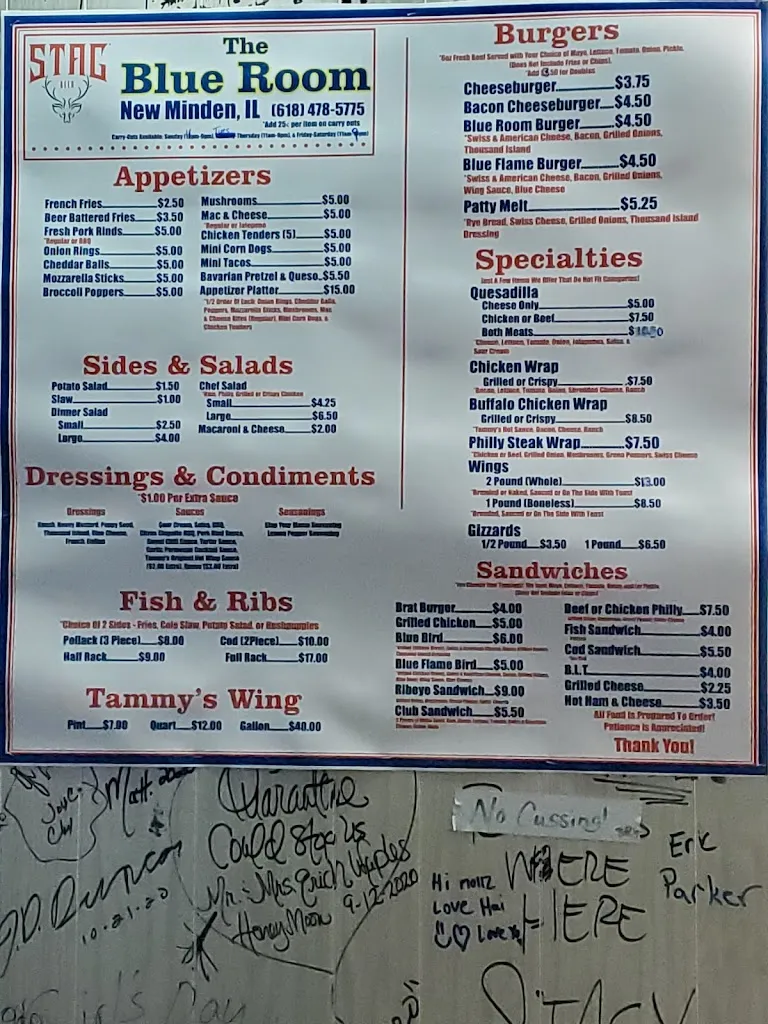 STAG
BEER
The
Blue Room
New Minden, IL (618) 478-5775
*Add 25¢ per item on carry outs
Appetizers
French Fries $2.50
Beer Battered Fries $3.50
Fresh Pork Rinds $5.00
*Regular or BBQ
Onion Rings $5.00
Cheddar Balls $5.00
Mozzarella Sticks $5.00
Broccoli Poppers $5.00
Mushrooms $5.00
Mac & Cheese $5.00
*Regular or Jalapeno
Chicken Tenders (5) $5.00
Mini Corn Dogs $5.00
Mini Tacos $5.00
Bavarian Pretzel & Queso $5.50
Appetizer Platter $15.00
*1/2 Order Of Each: Onion Rings, Cheddar Balls,
Poppers, Mozzarella Sticks, Mushrooms, Mac
& Cheese Bites (Regular), Mini Corn Dogs, &
Chicken Tenders
Sides & Salads
Potato Salad $1.50
Slaw $1.00
Dinner Salad
Small $2.50
Large $4.00
Chef Salad
*Ham, Philly, Grilled or Crispy Chicken
Small $4.25
Large $6.50
Macaroni & Cheese $2.00
Dressings & Condiments
*$1.00 Per Extra Sauce
Dressings
Ranch, Honey Mustard, Poppy Seed,
Thousand Island, Blue Cheese,
French, Italian
Sauces
Seasonings
Slap Your Mama Seasoning
Lemon Pepper Seasoning
Fish & Ribs
*Choice Of 2 Sides - Fries, Cole Slaw, Potato Salad, or Hushpuppies
Pollack (3 Piece) $8.00
Half Rack $9.00
Cod (2Piece) $10.00
Full Rack $17.00
Tammy's Wing
Pint $7.00 Quart $12.00 Gallon $40.00
Burgers
*6oz Fresh Beef Served with Your Choice of Mayo, Lettuce, Tomato, Onion, Pickle.
(Does Not Include Fries or Chips).
Cheeseburger $3.75
Bacon Cheeseburger $4.50
Blue Room Burger $4.50
*Swiss & American Cheese, Bacon, Grilled Onions,
Thousand Island
Blue Flame Burger $4.50
*Swiss & American Cheese, Bacon, Grilled Onions,
Wing Sauce, Blue Cheese
Patty Melt $5.25
*Rye Bread, Swiss Cheese, Grilled Onions, Thousand Island
Dressing
Specialties
Just A Few Items We Offer That Do Not Fit Categories!
Quesadilla
Cheese Only $5.00
Chicken or Beef $7.50
Both Meats
*Cheese, Lettuce, Tomato, Onion, Jalapenos, Salsa, &
Sour Cream
Chicken Wrap
Grilled or Crispy $7.50
*Bacon, Lettuce, Tomato, Onion, Shredded Cheese, Ranch
Buffalo Chicken Wrap
Grilled or Crispy $8.50
*Tammy's Hot Sauce, Bacon, Cheese, Ranch
Philly Steak Wrap $7.50
*Chicken or Beef, Grilled Onion, Mushrooms, Green Peppers, Swiss Cheese
Wings
2 Pound (Whole) $13.00
*Breaded or Naked, Sauced or On The Side With Toast
1 Pound (Boneless) $8.50
*Breaded, Sauced or On The Side With Toast
Gizzards
1/2 Pound $3.50 1 Pound $6.50
Sandwiches
Brat Burger $4.00
Grilled Chicken $5.00
Blue Bird $6.00
Blue Flame Bird $5.00
Ribeye Sandwich $9.00
Club Sandwich $5.50
Beef or Chicken Philly $7.50
Fish Sandwich $4.00
Cod Sandwich $5.50
B.L.T. $4.00
Grilled Cheese $2.25
Hot Ham & Cheese $3.50
All Food Is Prepared To Order!
Patience Is Appreciated!
Thank You!
J.D. Duncan
10.21.20
Quarantine
Could Stop Us
Mr. & Mrs. Erich
9-12-2020
Honey Moon
No Cussing!
Hi
Love Hai
Love
WHERE
HERE
Eric
Parker
STACY